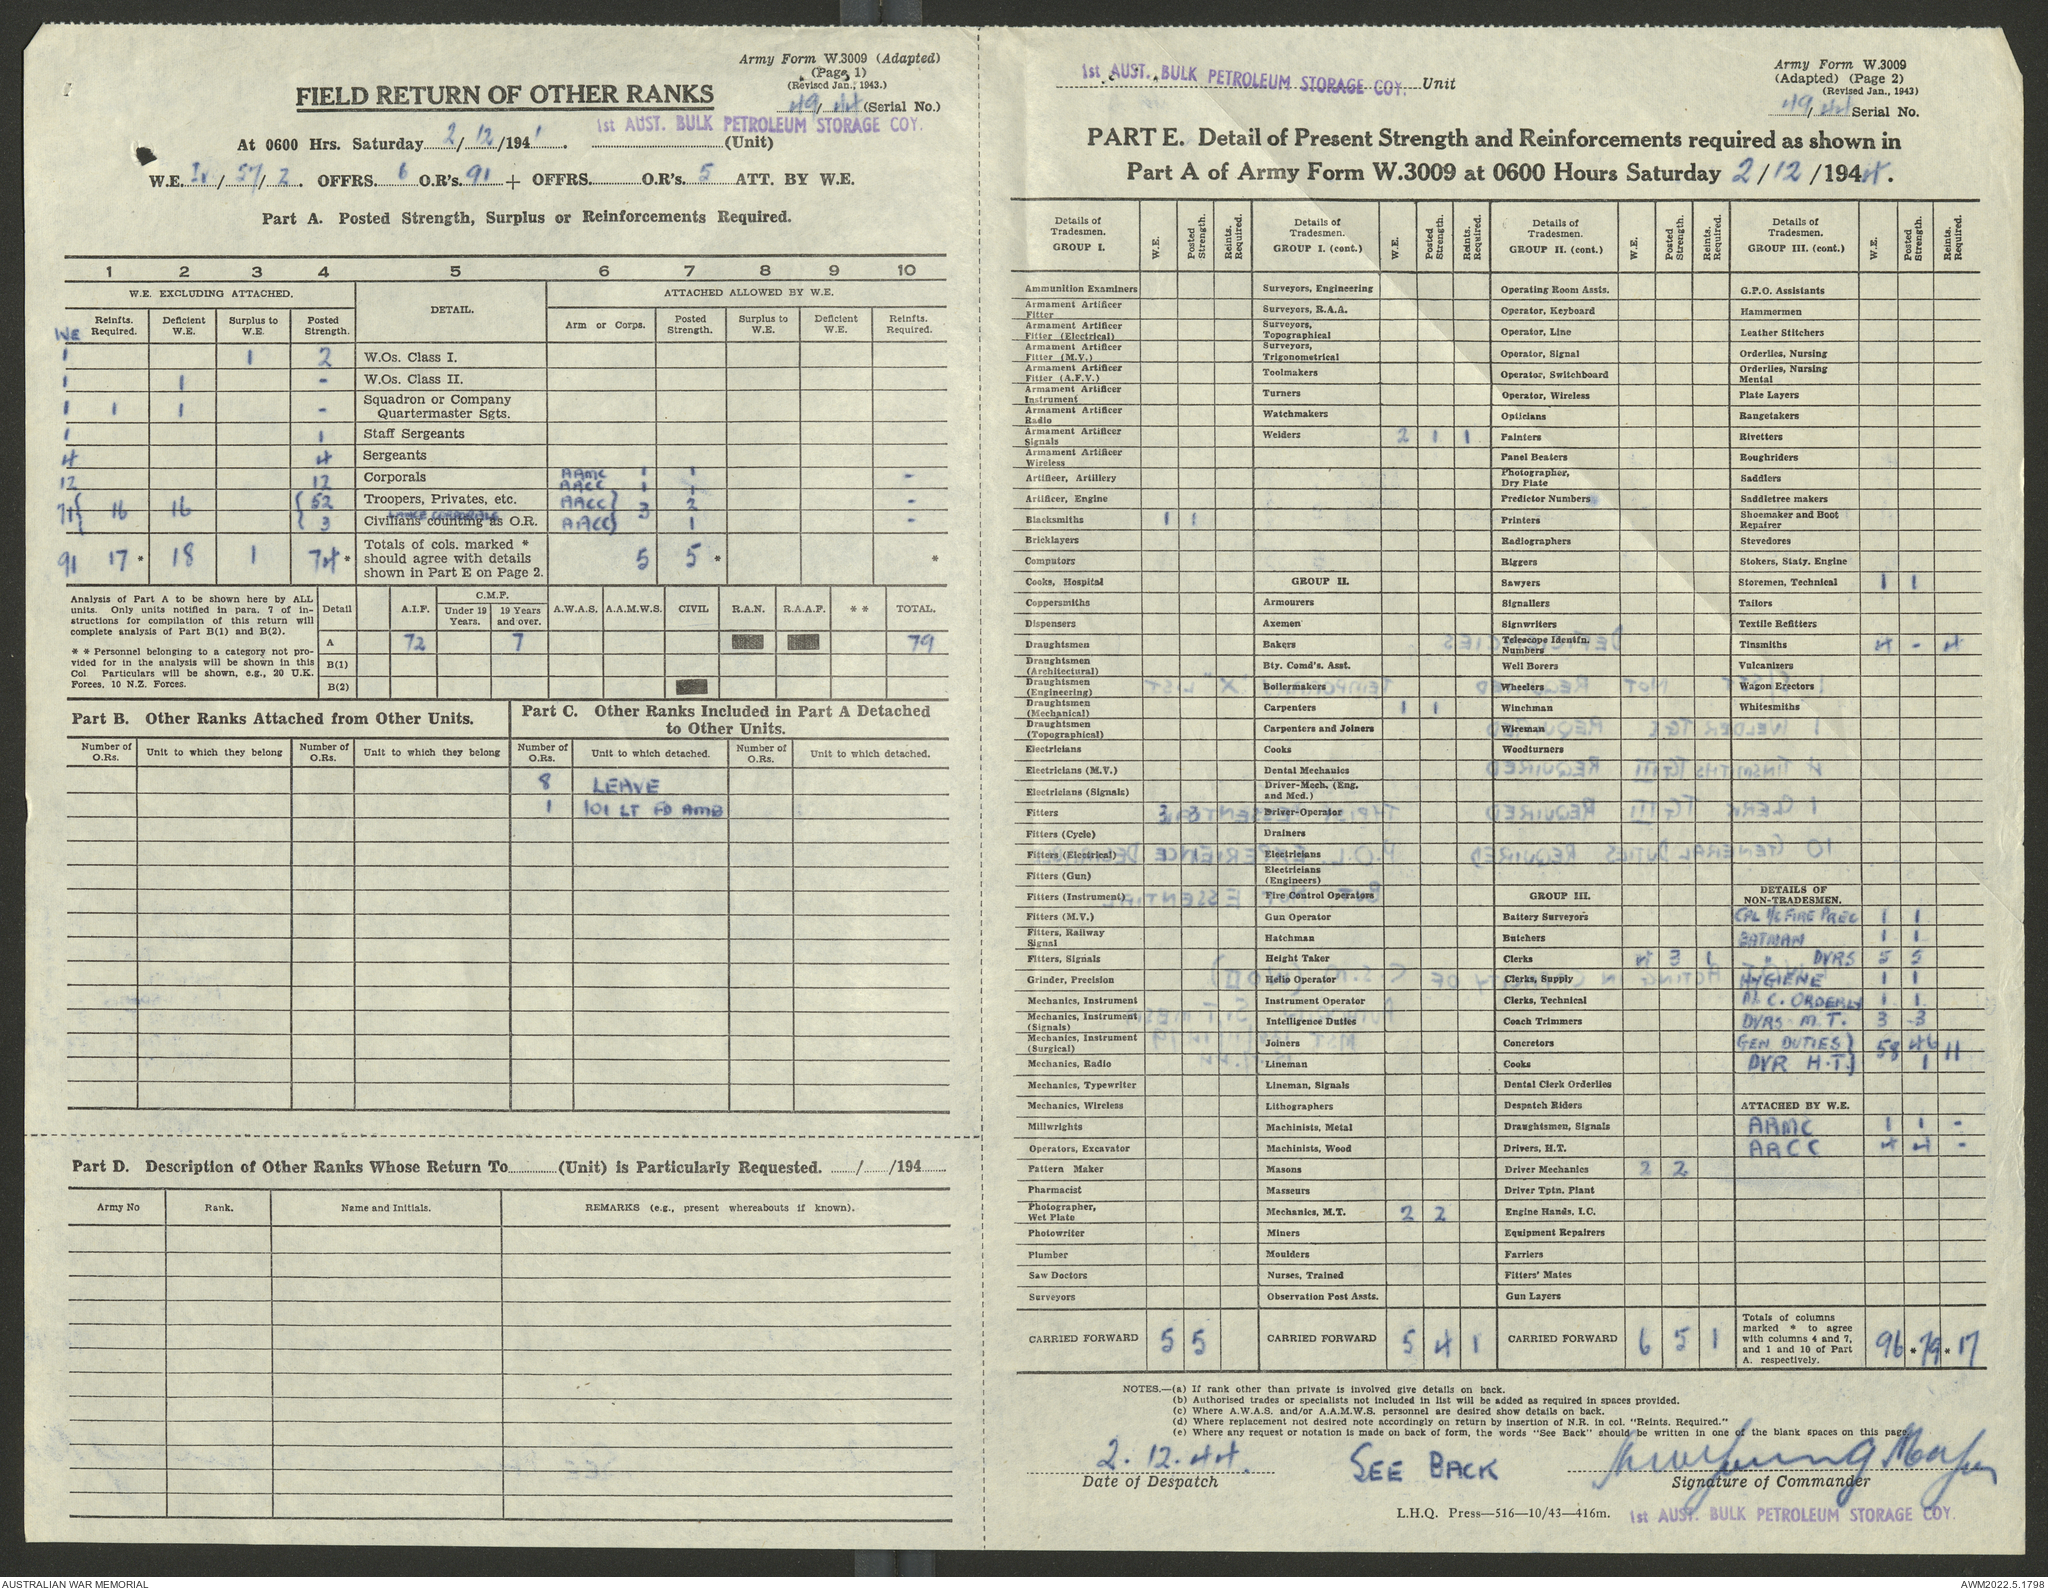 Army Form W.3009 (Adapted)
(Page 1)
(Revised Jan., 1943.)
FIELD RETURN OF OTHER RANKS
49/44 (Serial No.)
1st AUST. BULK PETROLEUM STORAGE COY.
At 0600 Hrs. Saturday 2/12/194 . (Unit)
W.E. /57/2. OFFRS. 6 O.R's. 91 + OFFRS. O.R's. 5 ATT. BY W.E.
Part A. Posted Strength, Surplus or Reinforcements Required.
1 2 3 4 5 6 7 8 9 10
W.E. EXCLUDING ATTACHED. DETAIL. ATTACHED ALLOWED BY W.E.
WE Reinfts. Required. Deficient W.E. Surplus to W.E. Posted Strength. Arm or Corps. Posted Strength. Surplus to W.E. Deficient W.E. Reinfts. Required.
1 1 2 W.Os. Class I.
1 1 - W.Os. Class II.
1 1 1 - Squadron or Company Quartermaster Sgts.
1 1 Staff Sergeants
4 4 Sergeants
12 12 Corporals AAMC 1 1 -
AACC 1 1
71 { 16 16 { 52 Troopers, Privates, etc. AACC } 3 2 -
LANCE CORPORALS
3 Civilians counting as O.R. AACC } 1 -
91 17 * 18 1 74 * Totals of cols. marked * should agree with details shown in Part E on Page 2. 5 5 * *
Analysis of Part A to be shown here by ALL units. Only units notified in para. 7 of instructions for compilation of this return will complete analysis of Part B(1) and B(2).
* * Personnel belonging to a category not provided for in the analysis will be shown in this Col Particulars will be shown, e.g., 20 U.K. Forces, 10 N.Z. Forces.
Detail A.I.F. C.M.F. Under 19 Years. 19 Years and over. A.W.A.S. A.A.M.W.S. CIVIL R.A.N. R.A.A.F. * * TOTAL.
A 72 7 79
B(1)
B(2)
Part B. Other Ranks Attached from Other Units.
Part C. Other Ranks Included in Part A Detached to Other Units.
Number of O.Rs. Unit to which they belong Number of O.Rs. Unit to which they belong Number of O.Rs. Unit to which detached. Number of O.Rs. Unit to which detached.
8 LEAVE
1 101 LT FD AMB
Part D. Description of Other Ranks Whose Return To (Unit) is Particularly Requested. / /194
Army No Rank. Name and Initials. REMARKS (e.g., present whereabouts if known).
1st AUST. BULK PETROLEUM STORAGE COY. Unit
Army Form W.3009
(Adapted) (Page 2)
(Revised Jan., 1943)
49/44 Serial No.
PART E. Detail of Present Strength and Reinforcements required as shown in
Part A of Army Form W.3009 at 0600 Hours Saturday 2/12/1944.
Details of Tradesmen. GROUP I. W.E. Posted Strength. Reints. Required.
Ammunition Examiners
Armament Artificer Fitter
Armament Artificer Fitter (Electrical)
Armament Artificer Fitter (M.V.)
Armament Artificer Fitter (A.F.V.)
Armament Artificer Instrument
Armament Artificer Radio
Armament Artificer Signals
Armament Artificer Wireless
Artificer, Artillery
Artificer, Engine
Blacksmiths 1 1
Bricklayers
Computors
Cooks, Hospital
Coppersmiths
Dispensers
Draughtsmen
Draughtsmen (Architectural)
Draughtsmen (Engineering)
Draughtsmen (Mechanical)
Draughtsmen (Topographical)
Electricians
Electricians (M.V.)
Electricians (Signals)
Fitters 3 3
Fitters (Cycle)
Fitters (Electrical) 1 1
Fitters (Gun)
Fitters (Instrument)
Fitters (M.V.)
Fitters, Railway Signal
Fitters, Signals
Grinder, Precision
Mechanics, Instrument
Mechanics, Instrument (Signals)
Mechanics, Instrument (Surgical)
Mechanics, Radio
Mechanics, Typewriter
Mechanics, Wireless
Millwrights
Operators, Excavator
Pattern Maker
Pharmacist
Photographer, Wet Plate
Photowriter
Plumber
Saw Doctors
Surveyors
CARRIED FORWARD 5 5
Details of Tradesmen. GROUP I. (cont.) W.E. Posted Strength. Reints. Required.
Surveyors, Engineering
Surveyors, R.A.A.
Surveyors, Topographical
Surveyors, Trigonometrical
Toolmakers
Turners
Watchmakers
Welders 2 1 1
GROUP II.
Armourers
Axemen
Bakers
Bty. Comd's. Asst.
Boilermakers
Carpenters 1 1
Carpenters and Joiners
Cooks
Dental Mechanics
Driver-Mech. (Eng. and Med.)
Driver-Operator
Drainers
Electricians
Electricians (Engineers)
Fire Control Operators
Gun Operator
Hatchman
Height Taker
Helio Operator
Instrument Operator
Intelligence Duties
Joiners
Lineman
Lineman, Signals
Lithographers
Machinists, Metal
Machinists, Wood
Masons
Masseurs
Mechanics, M.T. 2 2
Miners
Moulders
Nurses, Trained
Observation Post Assts.
CARRIED FORWARD 5 4 1
Details of Tradesmen. GROUP II. (cont.) W.E. Posted Strength. Reints. Required.
Operating Room Assts.
Operator, Keyboard
Operator, Line
Operator, Signal
Operator, Switchboard
Operator, Wireless
Opticians
Painters
Panel Beaters
Photographer, Dry Plate
Predictor Numbers
Printers
Radiographers
Riggers
Sawyers
Signallers
Signwriters
Telescope Identfn. Numbers
Well Borers
Wheelers
Winchman
Wireman
Woodturners
GROUP III.
Battery Surveyors
Butchers
Clerks 4 3 1
Clerks, Supply
Clerks, Technical
Coach Trimmers
Concretors
Cooks
Dental Clerk Orderlies
Despatch Riders
Draughtsmen, Signals
Drivers, H.T.
Driver Mechanics 2 2
Driver Tptn. Plant
Engine Hands, I.C.
Equipment Repairers
Farriers
Fitters' Mates
Gun Layers
CARRIED FORWARD 6 5 1
Details of Tradesmen. GROUP III. (cont.) W.E. Posted Strength. Reints. Required.
G.P.O. Assistants
Hammermen
Leather Stitchers
Orderlies, Nursing
Orderlies, Nursing Mental
Plate Layers
Rangetakers
Rivetters
Roughriders
Saddlers
Saddletree makers
Shoemaker and Boot Repairer
Stevedores
Stokers, Staty. Engine
Storemen, Technical 1 1
Tailors
Textile Refitters
Tinsmiths 4 - 4
Vulcanizers
Wagon Erectors
Whitesmiths
DETAILS OF NON-TRADESMEN.
CPL I/C FIRE PREC 1 1
BATMAN 1 1
" DVRS 5 5
HYGIENE 1 1
M.C. ORDERLY 1 1
DVRS M.T. 3 3
GEN DUTIES } 58 46 11
DVR H.T. } 1
ATTACHED BY W.E.
AAMC 1 1 -
AACC 4 4 -
Totals of columns marked * to agree with columns 4 and 7, and 1 and 10 of Part A. respectively. 96 * 79 * 17
NOTES.—(a) If rank other than private is involved give details on back.
(b) Authorised trades or specialists not included in list will be added as required in spaces provided.
(c) Where A.W.A.S. and/or A.A.M.W.S. personnel are desired show details on back.
(d) Where replacement not desired note accordingly on return by insertion of N.R. in col. "Reints. Required."
(e) Where any request or notation is made on back of form, the words "See Back" should be written in one of the blank spaces on this page.
2.12.44.
Date of Despatch
SEE BACK
Young Major
Signature of Commander
L.H.Q. Press—516—10/43—416m.
1st AUST. BULK PETROLEUM STORAGE COY.
AUSTRALIAN WAR MEMORIAL
AWM2022.5.1798